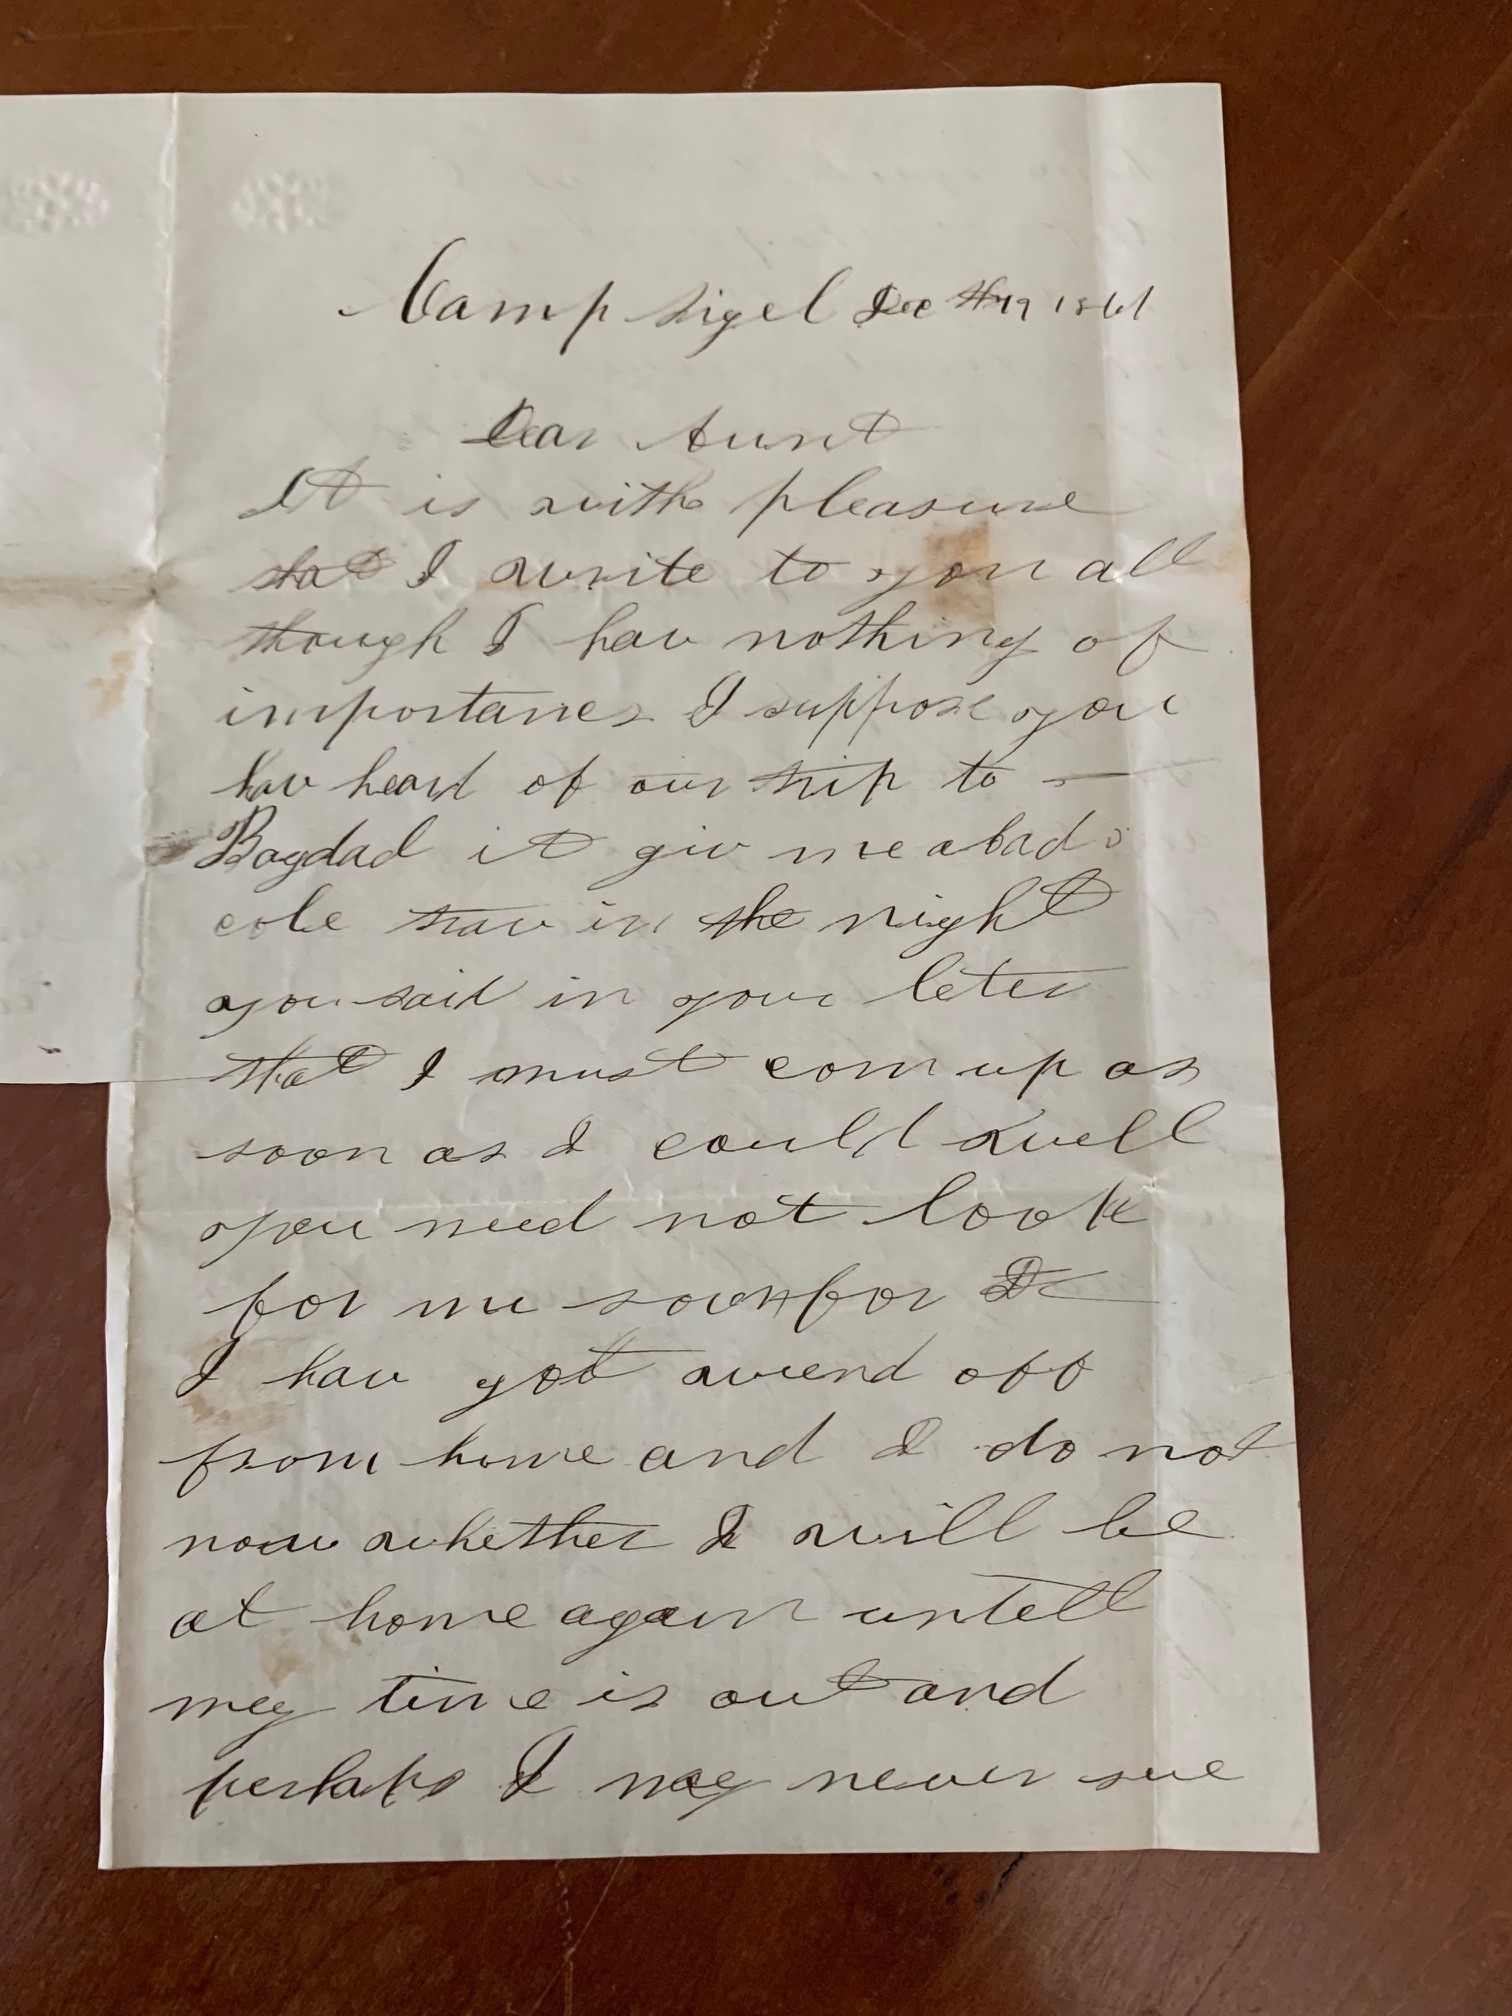 Camp Sigel Dec 19 1861
Dear Aunt
It is with pleasure
that I write to you all
though I hav nothing of
importance I suppose you
hav heard of our trip to
Bagdad it giv me a bad
cole in the night
you said in your leter
that I must com up as
soon as I could well
you need not look
for me soon for
I hav got wend off
from home and I do not
now whether I will be
at home again untell
mey time is out and
perhaps I mey never see